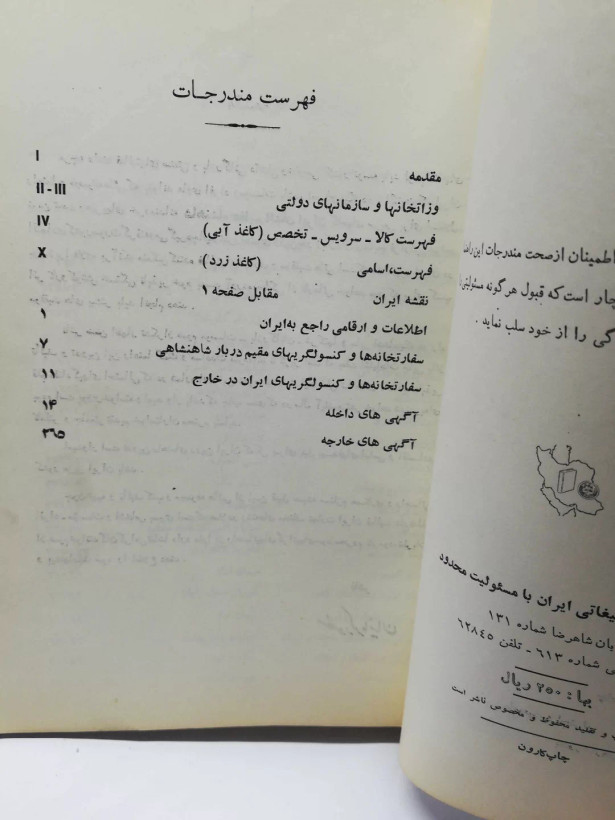 فهرست مندرجات
مقدمه I
وزاتخانها و سازمانهای دولتی II - III
فهرست کالا - سرویس - تخصص (کاغذ آبی) IV
فهرست اسامی (کاغذ زرد) X
نقشه ایران مقابل صفحه ۱
اطلاعات و ارقامی راجع به ایران ۱
سفارتخانه‌ها و کنسولگریهای مقیم دربار شاهنشاهی ۷
سفارتخانه‌ها و کنسولگریهای ایران در خارج ۱۱
آگهی های داخله ۱۴
آگهی های خارجه ۳۶۵
اطمینان از صحت مندرجات این
چار است که قبول هر گونه مسئولیتی
گی را از خود سلب نماید .
یغاتی ایران با مسئولیت محدود
یان شاهرضا شماره ۱۳۱
ی شماره ۶۱۳ - تلفن ۶۲۸۴۵
بها : ۲۵۰ ریال
و تقلید محفوظ و مخصوص ناشر است
چاپ کارون